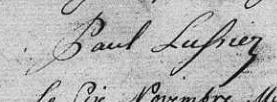 Paul Lussier
Le Six Novembre M